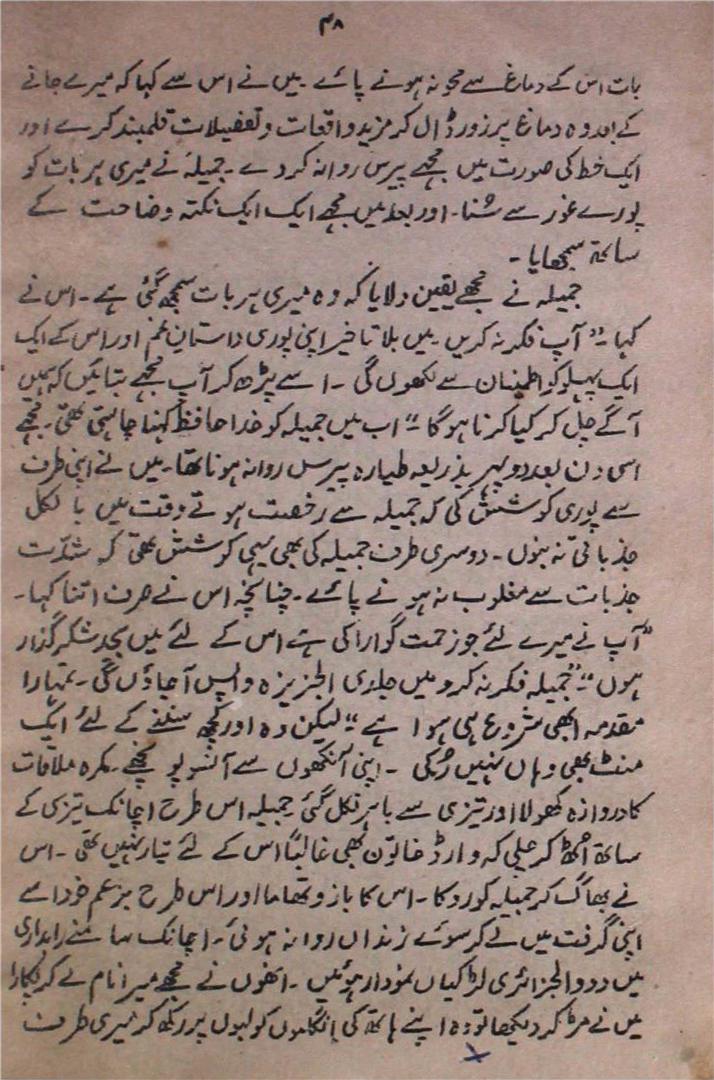 ۴۸
بات اس کے دماغ سے محو نہ ہونے پائے ۔ میں نے اس سے کہا کہ میرے جانے
کے بعد وہ دماغ پر زور ڈال کر مزید واقعات و تفصیلات قلمبند کرے اور
ایک خط کی صورت میں مجھے پیرس روانہ کر دے ۔ جمیلہ نے میری ہر بات کو
پورے غور سے سُنا ۔ اور بعد میں مجھے ایک ایک نکتہ وضاحت کے
ساتھ سمجھایا ۔
جمیلہ نے مجھے یقین دلایا کہ وہ میری ہر بات سمجھ گئی ہے ۔ اس نے
کہا ۔" آپ فکر نہ کریں ۔ میں بلا تاخیر اپنی پوری داستانِ غم اور اس کے ایک
ایک پہلو کو اطمینان سے لکھوں گی ۔ اسے پڑھ کر آپ مجھے بتائیں کہ ہمیں
آگے چل کر کیا کرنا ہوگا ۔" اب میں جمیلہ کو خدا حافظ کہنا چاہتی تھی ۔ مجھے
اسی دن بعد دوپہر بذریعہ طیارہ پیرس روانہ ہونا تھا ۔ میں نے اپنی طرف
سے پوری کوشش کی کہ جمیلہ سے رخصت ہوتے وقت میں بالکل
جذباتی نہ بنوں ۔ دوسری طرف جمیلہ کی بھی یہی کوشش تھی کہ شدّت
جذبات سے مغلوب نہ ہونے پائے ۔ چنانچہ اس نے صرف اتنا کہا ۔
"آپ نے میرے لئے جو زحمت گوارا کی ہے اس کے لئے میں بیحد شکر گذار
ہوں ۔" "جمیلہ فکر نہ کرو میں جلدی الجزیرہ واپس آجاؤں گی ۔ تمہارا
مقدمہ ابھی شروع ہی ہوا ہے ۔" لیکن وہ اور کچھ سننے کے لئے ایک
منٹ بھی وہاں نہیں رُکی ۔ اپنی آنکھوں سے آنسو پونچھے ۔ کمرہ ملاقات
کا دروازہ کھولا اور تیزی سے باہر نکل گئی جمیلہ اس طرح اچانک تیزی کے
ساتھ اُٹھ کر چلی کہ وارڈ خاتون بھی غالباً اس کے لئے تیار نہیں تھی ۔ اس
نے بھاگ کر جمیلہ کو روکا ۔ اس کا بازو تھاما اور اس طرح بزعم خود اسے
اپنی گرفت میں لے کر سوئے زنداں روانہ ہوئی ۔ اچانک سامنے راہداری
میں دو الجزائری لڑکیاں نمودار ہوئیں ۔ انھوں نے مجھے میرا نام لے کر پکارا
میں نے مڑ کر دیکھا تو وہ اپنے ہاتھ کی انگلیوں کو لبوں پر رکھ کر میری طرف